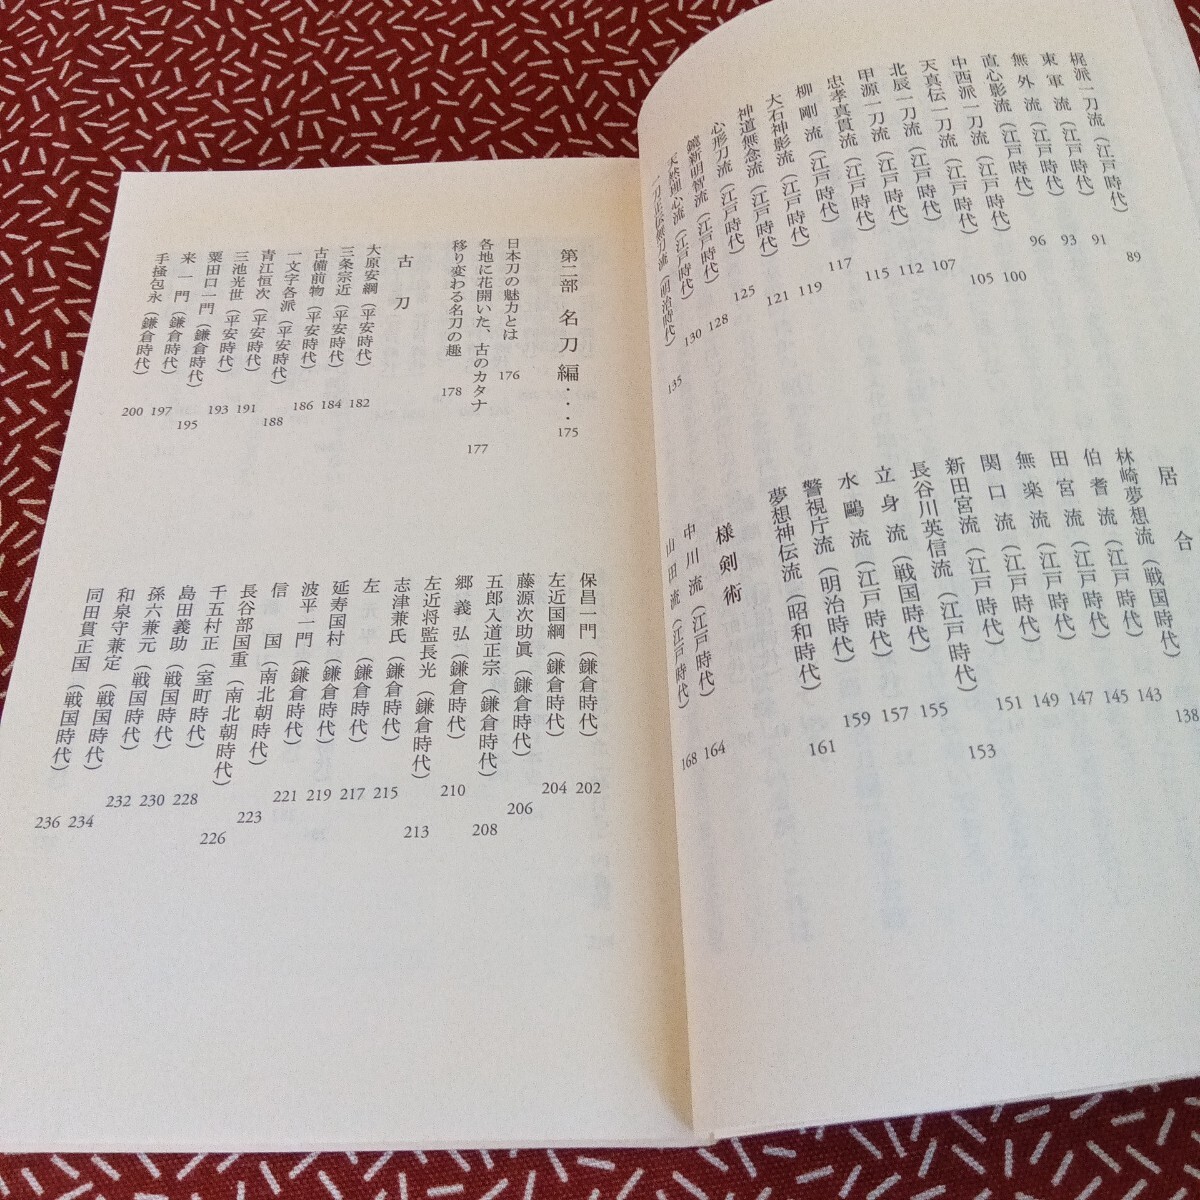 梶派一刀流（江戸時代） 89
東軍流（江戸時代） 91
無外流（江戸時代） 93
直心影流（江戸時代） 96
中西派一刀流（江戸時代） 100
天真伝一刀流（江戸時代） 105
北辰一刀流（江戸時代） 107
甲源一刀流（江戸時代） 112
忠孝真貫流（江戸時代） 115
柳剛流（江戸時代） 117
大石神影流（江戸時代） 119
神道無念流（江戸時代） 121
心形刀流（江戸時代） 125
鏡新明智流（江戸時代） 128
天然理心流（江戸時代） 130
一刀正伝無刀流（明治時代） 135
居合
林崎夢想流（戦国時代） 138
伯耆流（江戸時代） 143
田宮流（江戸時代） 145
無楽流（江戸時代） 147
関口流（江戸時代） 149
新田宮流（江戸時代） 151
長谷川英信流（江戸時代） 153
立身流（戦国時代） 155
水鷗流（江戸時代） 157
警視庁流（明治時代） 159
夢想神伝流（昭和時代） 161
様剣術
中川流（江戸時代） 164
山田流（江戸時代） 168
第二部 名刀編・・・・175
日本刀の魅力とは 176
各地に花開いた、古のカタナ 177
移り変わる名刀の趣 178
古刀
大原安綱（平安時代） 182
三条宗近（平安時代） 184
古備前物（平安時代） 186
一文字各派（平安時代） 188
青江恒次（平安時代） 191
三池光世（平安時代） 193
粟田口一門（鎌倉時代） 195
来一門（鎌倉時代） 197
手掻包永（鎌倉時代） 200
保昌一門（鎌倉時代） 202
左近国綱（鎌倉時代） 204
藤源次助眞（鎌倉時代） 206
五郎入道正宗（鎌倉時代） 208
郷義弘（鎌倉時代） 210
左近将監長光（鎌倉時代） 213
志津兼氏（鎌倉時代） 215
左（鎌倉時代） 217
延寿国村（鎌倉時代） 219
波平一門（鎌倉時代） 221
信国（南北朝時代） 223
長谷部国重（南北朝時代） 226
千五村正（室町時代） 228
島田義助（戦国時代） 230
孫六兼元（戦国時代） 232
和泉守兼定（戦国時代） 234
同田貫正国（戦国時代） 236